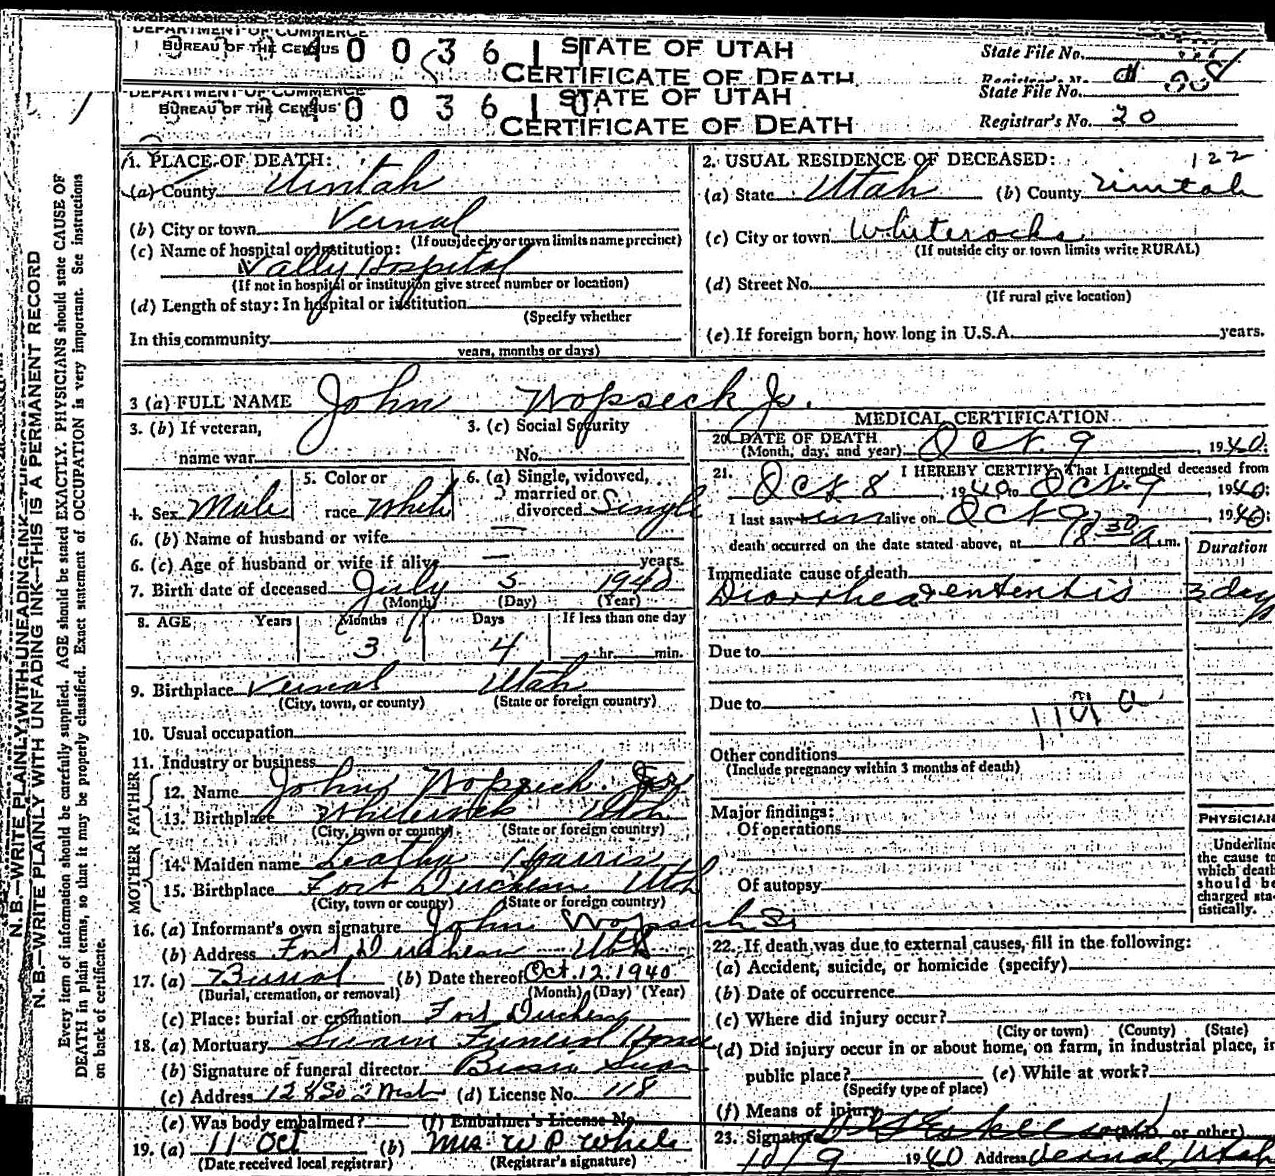 DEPARTMENT OF COMMERCE
BUREAU OF THE CENSUS
STATE OF UTAH
CERTIFICATE OF DEATH
State File No.
DEPARTMENT OF COMMERCE
BUREAU OF THE CENSUS
4 0 0 3 6 1 0
STATE OF UTAH
CERTIFICATE OF DEATH
State File No.
Registrar's No. 20
1. PLACE OF DEATH:
(a) County Uintah
(b) City or town Vernal
(If outside city or town limits name precinct)
(c) Name of hospital or institution:
Vally Hospital
(If not in hospital or institution give street number or location)
(d) Length of stay: In hospital or institution
(Specify whether
In this community
years, months or days)
2. USUAL RESIDENCE OF DECEASED: 122
(a) State Utah (b) County Uintah
(c) City or town Whiterocks
(If outside city or town limits write RURAL)
(d) Street No.
(If rural give location)
(e) If foreign born, how long in U.S.A. years.
3 (a) FULL NAME John Wopseck Jr.
3. (b) If veteran,
name war
3. (c) Social Security
No.
4. Sex Male
5. Color or
race White
6. (a) Single, widowed,
married or
divorced Single
6. (b) Name of husband or wife —
6. (c) Age of husband or wife if alive — years.
7. Birth date of deceased July 5 1940
(Month) (Day) (Year)
8. AGE Years Months Days If less than one day
3 4 hr. min.
9. Birthplace Vernal Utah
(City, town, or county) (State or foreign country)
10. Usual occupation
11. Industry or business
FATHER
12. Name John Wopseck
13. Birthplace Whiterock Utah
(City, town or county) (State or foreign country)
MOTHER
14. Maiden name Leatha Harris
15. Birthplace Fort Duchesne Utah
(City, town or county) (State or foreign country)
16. (a) Informant's own signature John Wopseck Sr
(b) Address Fort Duchesne Utah
17. (a) Burial (b) Date thereof Oct. 12. 1940
(Burial, cremation, or removal) (Month) (Day) (Year)
(c) Place: burial or cremation Fort Duchesne
18. (a) Mortuary Swain Funeral Home
(b) Signature of funeral director Swain
(c) Address 128 So 2 West (d) License No. 118
(e) Was body embalmed? (f) Embalmer's License No.
19. (a) 11 Oct (b) Mrs W P White
(Date received local registrar) (Registrar's signature)
MEDICAL CERTIFICATION
20. DATE OF DEATH
(Month, day, and year) Oct. 9 1940
21. I HEREBY CERTIFY, That I attended deceased from
Oct 8, 1940 to Oct. 9, 1940;
I last saw him alive on Oct 9, 1940;
death occurred on the date stated above, at 8 30 a.m.
Duration
Immediate cause of death
Diorrhea & ententis 3 days
Due to
Due to
119 a
Other conditions
(Include pregnancy within 3 months of death)
Major findings:
Of operations
Of autopsy
PHYSICIAN
Underline
the cause to
which death
should be
charged sta-
tistically.
22. If death was due to external causes, fill in the following:
(a) Accident, suicide, or homicide (specify)
(b) Date of occurrence
(c) Where did injury occur?
(City or town) (County) (State)
(d) Did injury occur in or about home, on farm, in industrial place, in
public place? (e) While at work?
(Specify type of place)
(f) Means of injury
23. Signature or other)
10/9 1940 Address Vernal, Utah
N. B.—WRITE PLAINLY WITH UNFADING INK—THIS IS A PERMANENT RECORD
Every item of information should be carefully supplied. AGE should be stated EXACTLY. PHYSICIANS should state CAUSE OF
DEATH in plain terms, so that it may be properly classified. Exact statement of OCCUPATION is very important. See instructions
on back of certificate.